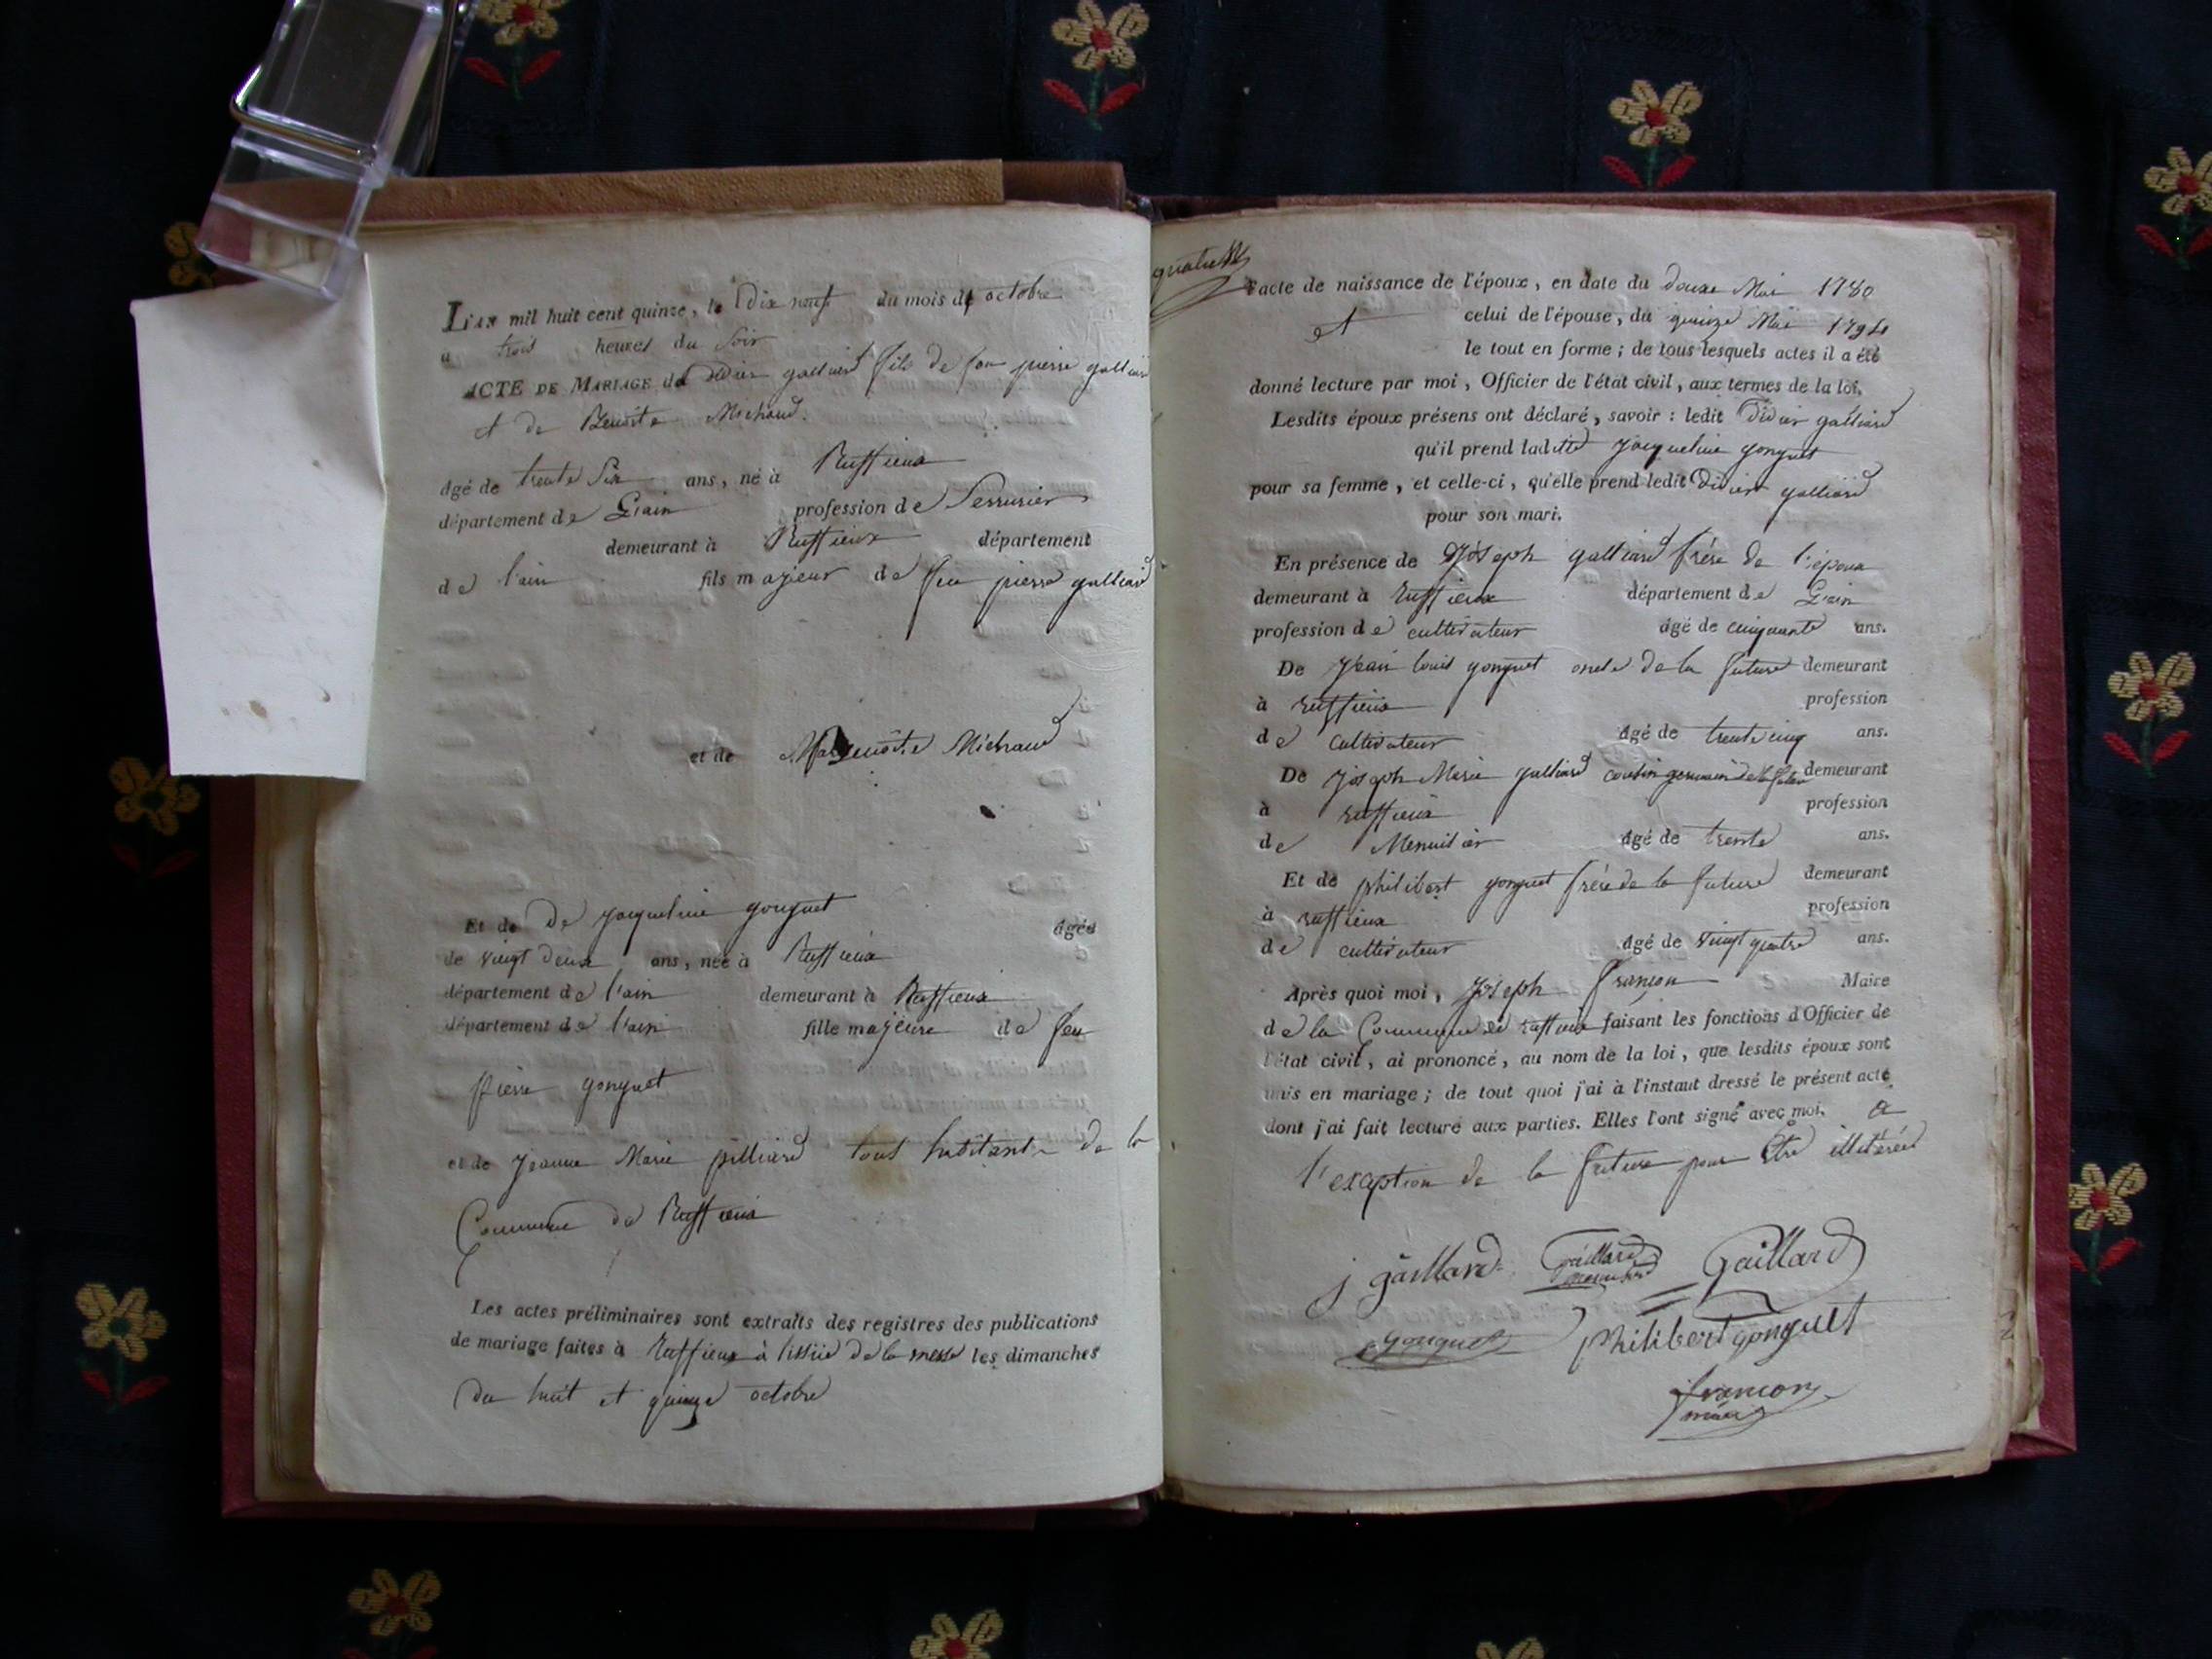 L'an mil huit cent quinze, le Dix neuf du mois de octobre
à trois heures du Soir
ACTE DE MARIAGE de Didier galliard fils de feu pierre galliard
et de Benoite Michaud.
âgé de trente Six ans, né à Ruffieux
département de L'ain profession de Serrurier
demeurant à Ruffieux département
de l'ain fils majeur de feu pierre galliard
et de Benoite Michaud
Et de De jacqueline gonguet âgée
de vingt deux ans, née à Ruffieux
département de l'ain demeurant à Ruffieux
département de l'ain fille majeure de feu
pierre gonguet
et de jeanne Marie pilliard tous habitants de la
Commune de Ruffieux
Les actes préliminaires sont extraits des registres des publications
de mariage faites à Ruffieux à l'issüe de la messe les dimanches
du huit et quinze octobre
l'acte de naissance de l'époux, en date du douze Mai 1780
et celui de l'épouse, du quinze Mai 1794
le tout en forme ; de tous lesquels actes il a été
donné lecture par moi, Officier de l'état civil, aux termes de la loi.
Lesdits époux présens ont déclaré, savoir : ledit Didier galliard
qu'il prend ladite jacqueline gonguet
pour sa femme, et celle-ci, qu'elle prend ledit Didier galliard
pour son mari.
En présence de joseph galliard frére de l'époux
demeurant à ruffieux département de L'ain
profession de cultivateur âgé de cinquante ans.
De jean louis gonguet oncle de la future demeurant
à ruffieux profession
de cultivateur âgé de trente cinq ans.
De joseph Marie galliard cousin germain de la future demeurant
à ruffieux profession
de Menuisier âgé de trente ans.
Et de philibert gonguet frére de la future demeurant
à ruffieux profession
de cultivateur âgé de vingt quatre ans.
Après quoi moi, joseph françon Maire
de la Commune de ruffieux faisant les fonctions d'Officier de
l'état civil, ai prononcé, au nom de la loi, que lesdits époux sont
unis en mariage ; de tout quoi j'ai à l'instaut dressé le présent acte
dont j'ai fait lecture aux parties. Elles l'ont signé avec moi. a
l'exeption de la future pour être illitérée
j gaillard Gaillard Gaillard
gonguet philibert gonguet
françon
maire